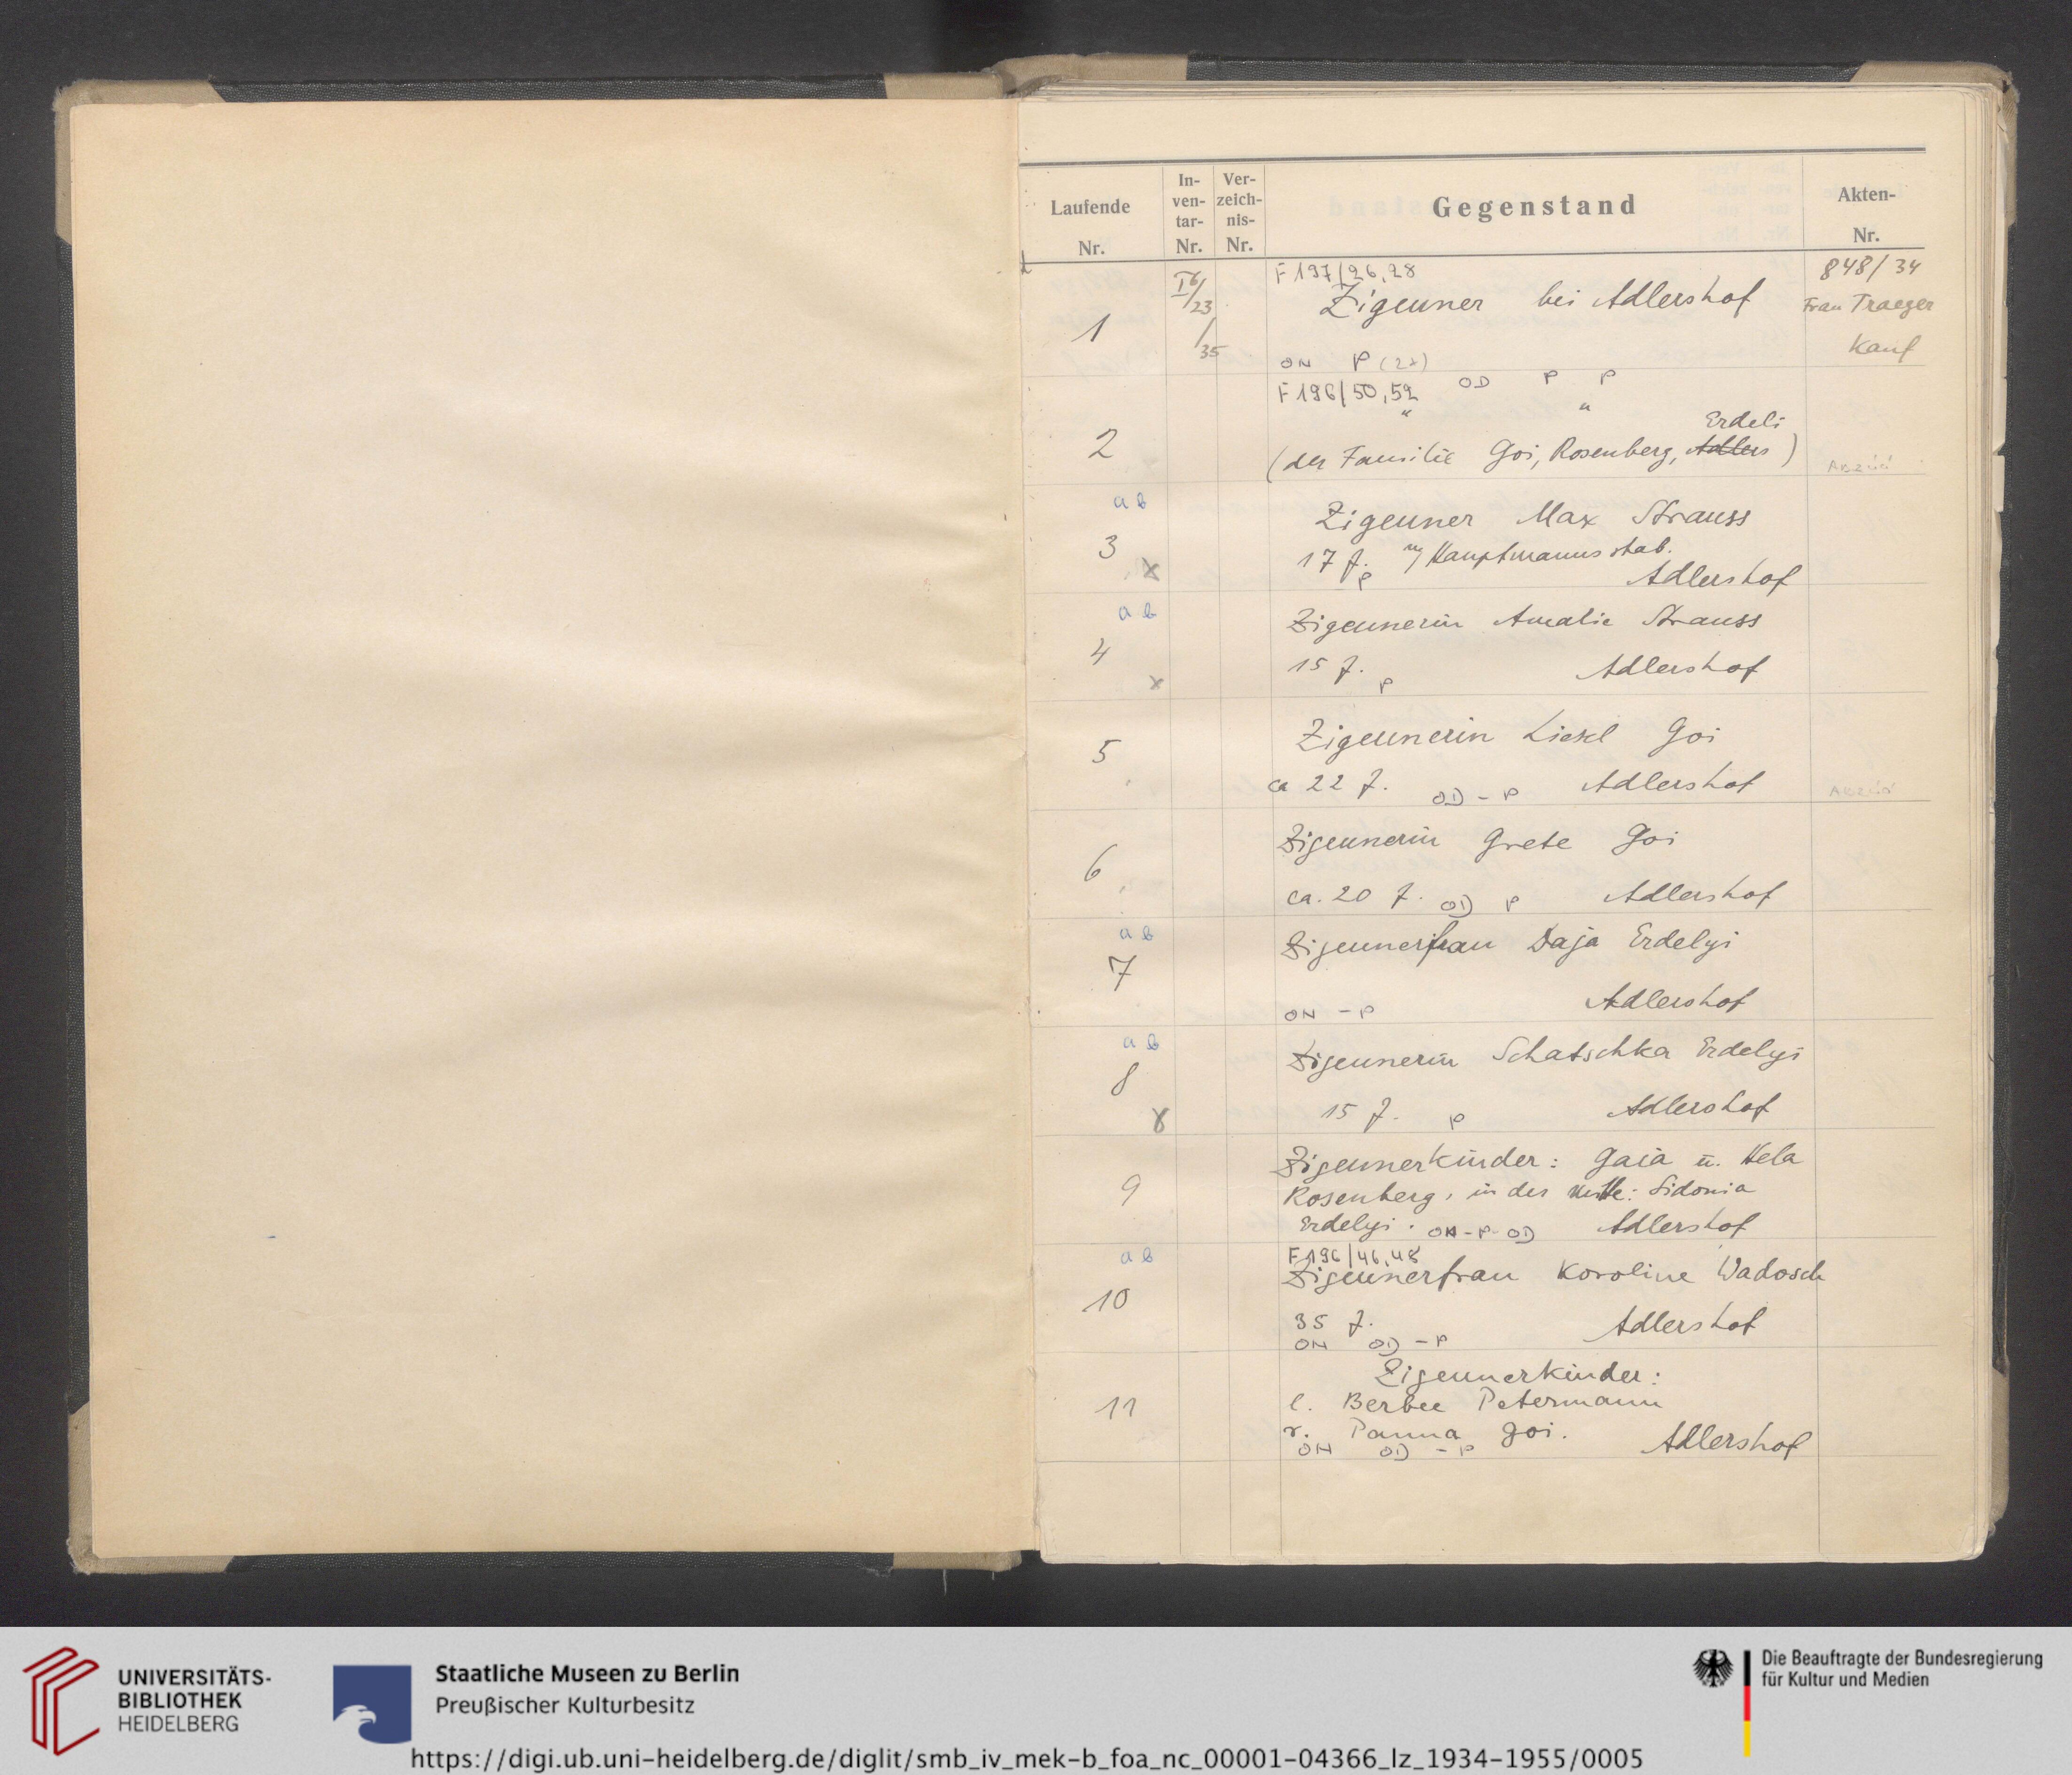 Laufende
Nr.
In-
ven-
tar-
Nr.
Ver-
zeich-
nis-
Nr.
Gegenstand
Akten-
Nr.
1
/23
/35
F 197/26,28
Zigeuner bei Adlershof
ON P (2x)
848/34
Frau Traeger
Kauf
2
F 196/50,52 OD P P
" "
Erdeli
(der Familie Goi, Rosenberg, Adlers)
a b
3 x
Zigeuner Max Strauss
17 J. m/ Hauptmannsstab.
P Adlershof
a b
4 x
Zigeunerin Amalie Strauss
15 J. P Adlershof
5
Zigeunerin Liesel Goi
ca 22 J. OD - P Adlershof
6
Zigeunerin Grete Goi
ca. 20 J. OD P Adlershof
a b
7
Zigeunerfrau Daja Erdelyi
ON - P Adlershof
a b
8 x
Zigeunerin Schatschka Erdelyi
15 J. P Adlershof
9
Zigeunerkinder: Gaia u. Hela
Rosenberg, in der Mitte: Sidonia
Erdelyi. ON - P - OD Adlershof
a b
10
F 196/46,48
Zigeunerfrau Koroline Wadosch
35 J. Adlershof
ON OD - P
11
Zigeunerkinder:
l. Berbee Petermann
r. Panna Goi.
ON OD - P Adlershof
UNIVERSITÄTS-
BIBLIOTHEK
HEIDELBERG
Staatliche Museen zu Berlin
Preußischer Kulturbesitz
Die Beauftragte der Bundesregierung
für Kultur und Medien
https://digi.ub.uni-heidelberg.de/diglit/smb_iv_mek-b_foa_nc_00001-04366_lz_1934-1955/0005